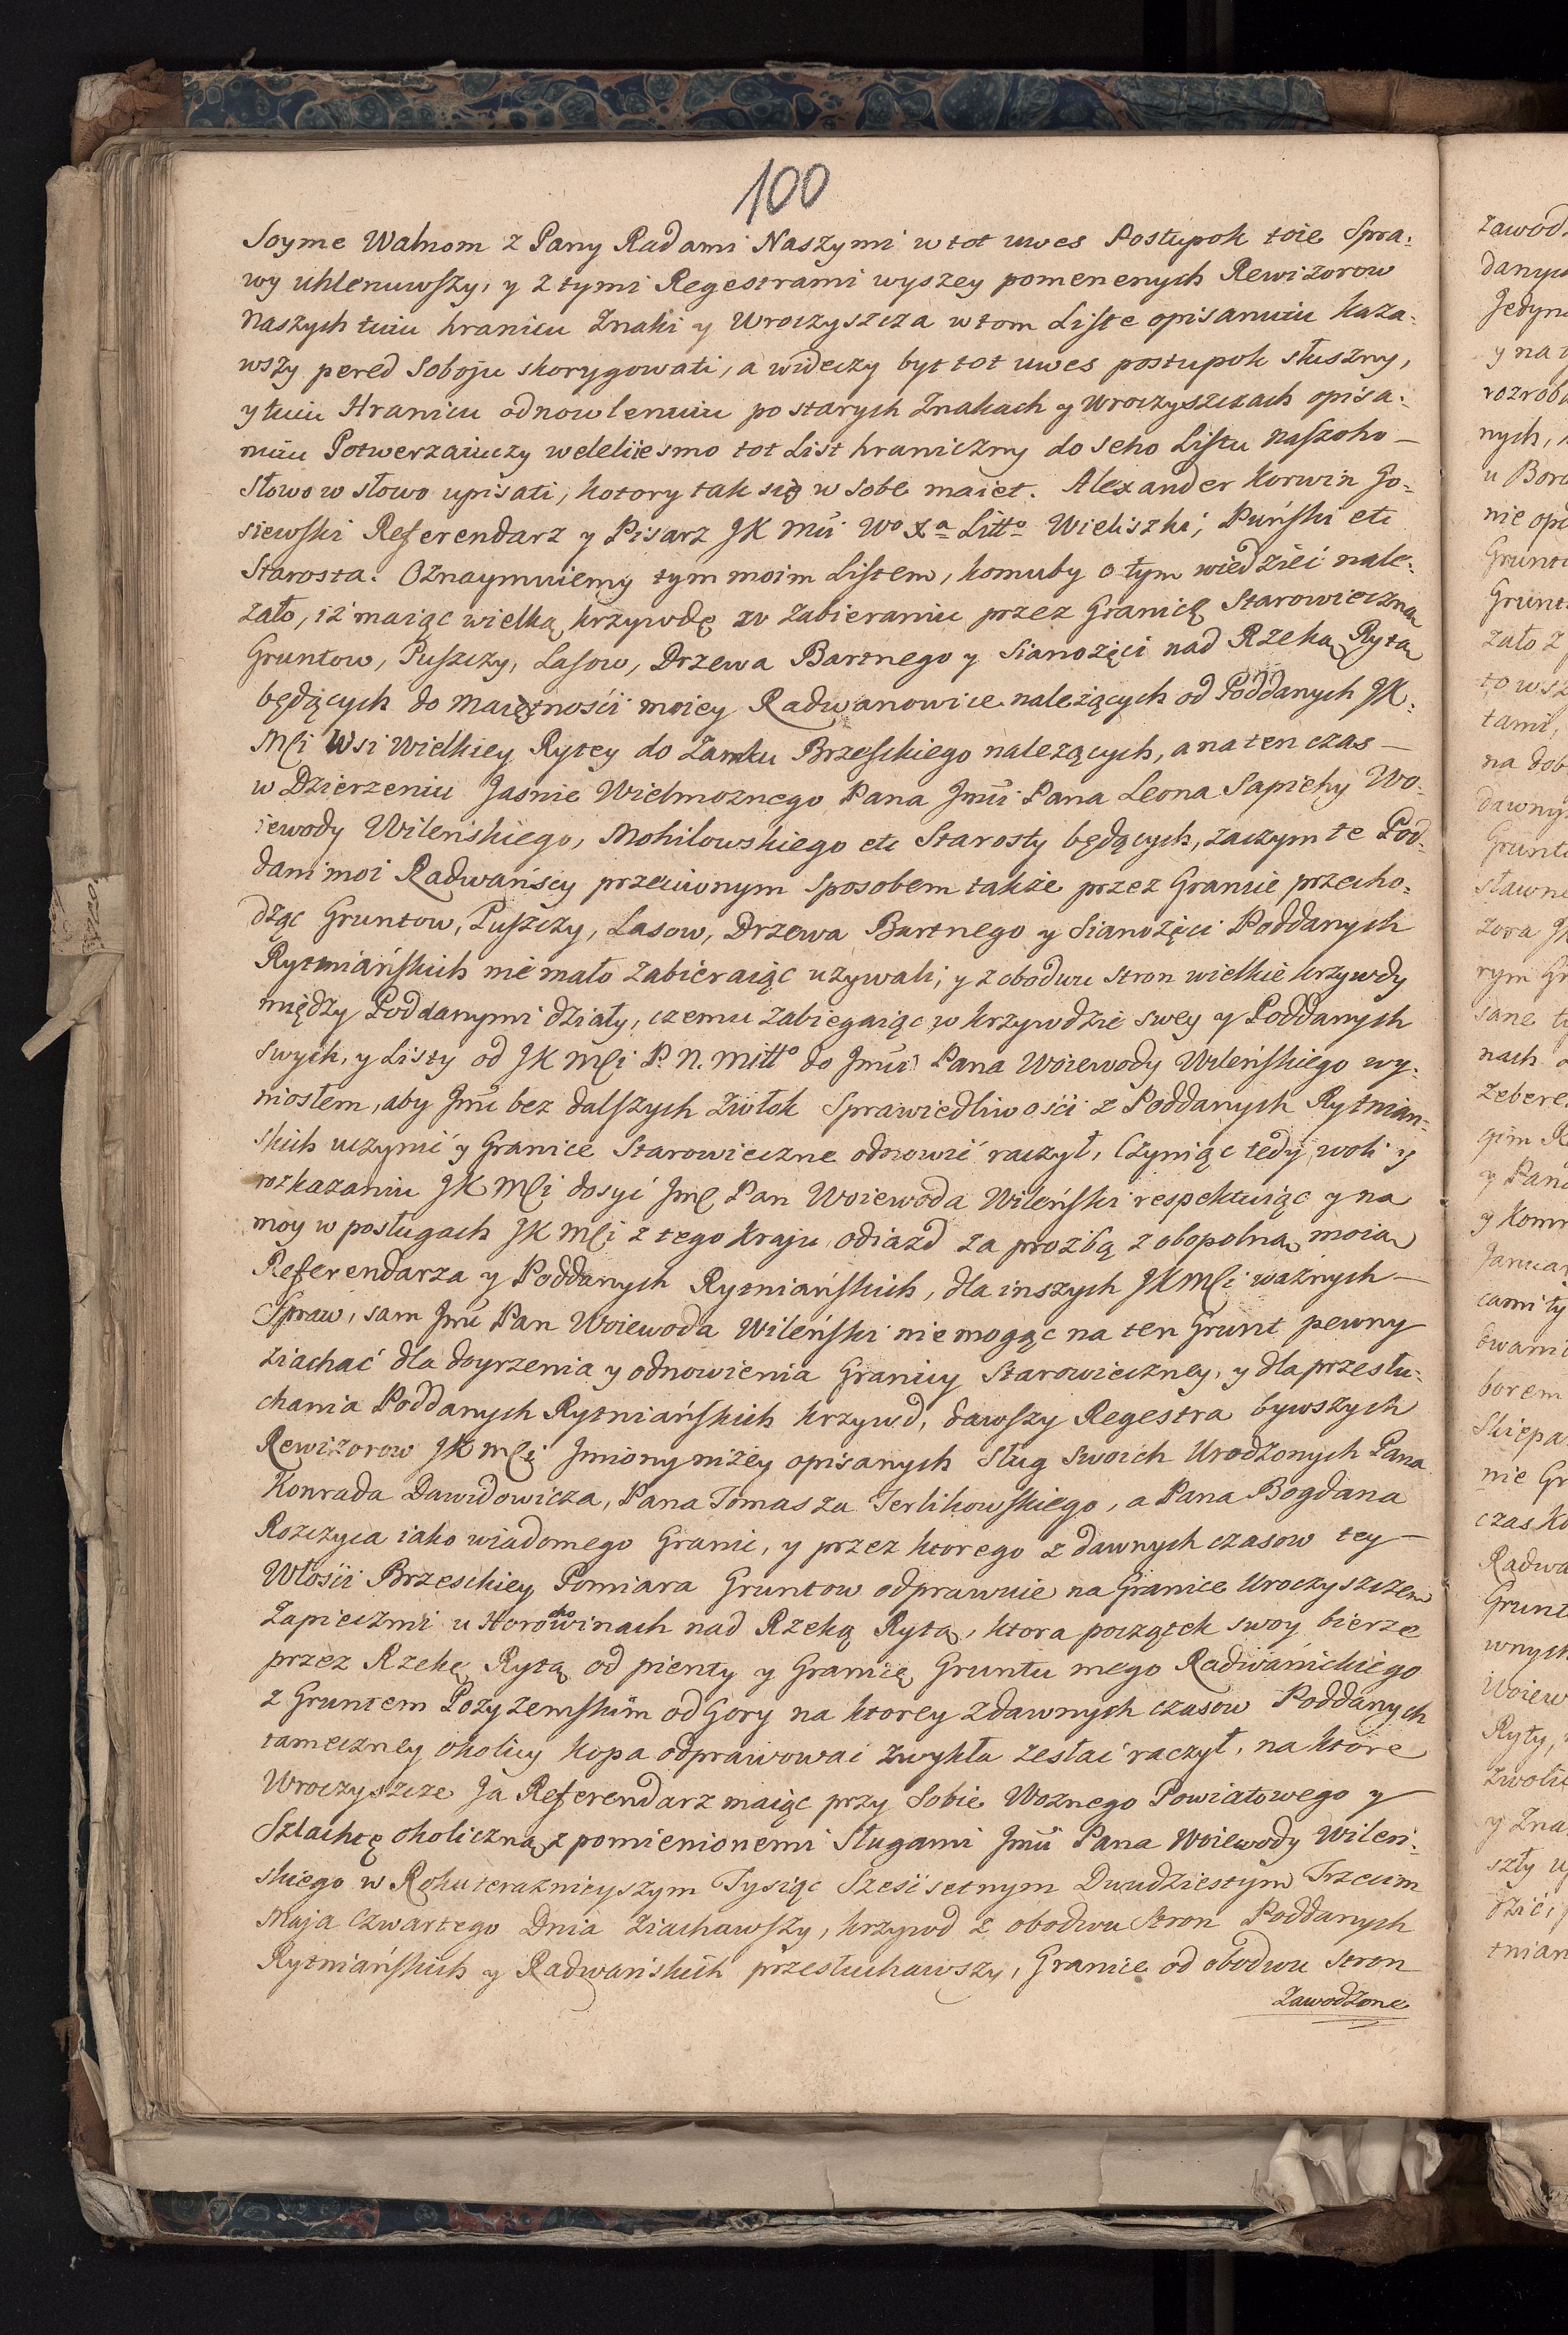 100
Soyme Walnom z Pany Radami Naszymi w tot uwes Postupok toie Spra:
wy uhlenuwszy, y z tymi Regestrami wyszey pomenenych Rewizorow
Naszych tuiu hranicu Znaki y Uroczyszcza w tom Liste opisanuiu kaza:
wszy pered Soboju skorygowati, a wideczy byt tot uwes postupok słuszny,
y tuiu Hranicu odnowlenuiu po starych Znakach y Uroczyszczach opisa:
nuiu Potwerzaiuczy weleliiesmo tot List hraniczny do seho Listu naszoho —
Słowo w słowo upisati, kotory tak się w sobe maiet. Alexander Korwin Go=
siewski Referendarz y Pisarz JK Mći Wo Xa Litto Wieliszki, Puński etc
Starosta. Oznaymuiemy tym moim Listem, komuby o tym wiedzieć nale:
zało, iż maiąc wielką krzywdę w zabieraniu przez Granicę Starowieczną
Gruntow, Puszczy, Lasow, Drzewa Bartnego y Sianożęci nad Rzeką Rytą
będących do Maiętności moiey Radwanowice należących od Poddanych JK.
Mści Wsi Wielkiey Rytey do Zamku Brzeskiego należących, a na ten czas —
w Dzierzeniu Jasnie Wielmoznego Pana Jmći Pana Leona Sapiehy Wo:
iewody Wileńskiego, Mohilowskiego etc Starosty będących, zaczym te Pod:
dani moi Radwańscy przeciwnym Sposobem także przez Granice przecho:
dząc Gruntow, Puszczy, Lasow, Drzewa Bartnego y Sianożęci Poddanych
Rytniańskich nie mało zabieraiąc uzywali, y z obodwu stron wielkie krzywdy
między Poddanymi działy, czemu zabiegaiąc w krzywdzie swey y Poddanych
swych, y Listy od JK Mści P. N. Mitto do Jmći Pana Woiewody Wileńskiego wy:
niosłem, aby Jmć bez dalszych zwłok Sprawiedliwości z Poddanych Rytnian=
skich uczynić y Granice Starowieczne odnowić raczył, Czyniąc tedy woli y
rozkazaniu JK Mści dosyć Jmć Pan Woiewoda Wileński respektuiąc y na
moy w posługach JK Mści z tego Kraju odiazd za prozbą z obopolną moią
Referendarza y Poddanych Rytniańskich, dla inszych JK Mści waznych —
Spraw, sam Jmć Pan Woiewoda Wileński nie mogąc na ten Grunt pewny
ziachać dla doyrzenia y odnowienia Granicy Starowieczney, y dla przesłu:
chania Poddanych Rytniańskich krzywd, dawszy Regestra bywszych
Rewizorow JK Mści Jmiony niżey opisanych Sług Swoich Urodzonych Pana
Konrada Dawidowicza, Pana Tomasza Terlikowskiego, a Pana Bogdana
Rozczyca iako wiadomego Granic, y przez ktorego z dawnych czasow tey —
Włości Brzeskiey Pomiara Gruntow odprawuie na Granice Uroczyszczem
Zapieczmi u Horochowinach nad Rzeką Rytą, ktora początek swoy bierze
przez Rzekę Rytą od pienty y Granicę Gruntu mego Radwanickiego
z Gruntem Pożyzemskim od Gory na ktorey z dawnych czasow Poddanych
tameczney okolicy kopa odprawować zwykła zesłać raczył, na ktore
Uroczyszcze Ja Referendarz maiąc przy Sobie Woznego Powiatowego y
Szlachtę okoliczną z pomienionemi Sługami Jmći Pana Woiewody Wileń:
skiego w Roku teraznieyszym Tysiąc Sześć setnym Dwudziestym Trzecim
Maja Czwartego Dnia ziachawszy, krzywd z obodwu Stron Poddanych
Rytniańskich y Radwańskich przesłuchawszy, Granice od obodwu Stron
Zawodzone